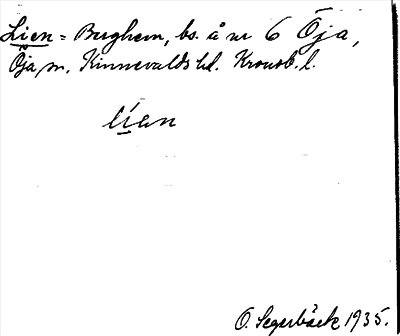 Lien = Berghem, bs. å nr 6 Öja,
Öja sn. Kinnevalds hd. Kronob. l.
lían
O. Segerbäck 1935.